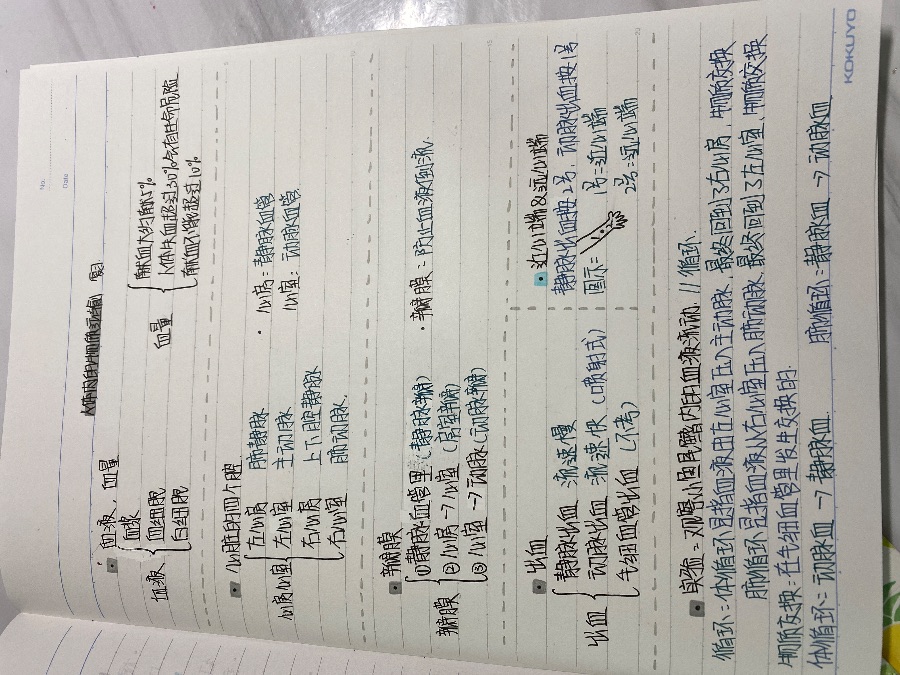 No.
Date
人体内的物质运输
血液、血量
血液
血浆
血细胞
白细胞
血量
献血大约除5%
人体失血超过30%会有生命危险
献血不能超过10%
心脏的四个腔
心房心室
左心房 肺静脉
左心室 主动脉
右心房 上下腔静脉
右心室 肺动脉.
· 心房=静脉血管
心室=动脉血管
瓣膜
瓣膜
①静脉血管里(静脉瓣)
②心房→心室(房室瓣)
③心室→动脉(动脉瓣)
· 瓣膜=防止血液倒流.
出血
出血
静脉出血 流速慢
动脉出血 流速快(喷射式)
毛细血管出血(不考)
近心端&远心端
静脉出血按2号,动脉出血按1号
图示=
1号=近心端
2号=远心端
实验=观察小鱼尾鳍内的血液流动. // 循环.
循环=体循环是指血液由左心室压入主动脉,最终回到了右心房,物质交换
肺循环是指血液从右心室压入肺动脉,最终回到了左心室,物质交换
物质交换=在毛细血管里发生交换的.
体循环=动脉血→静脉血. 肺循环=静脉血→动脉血
KOKUYO